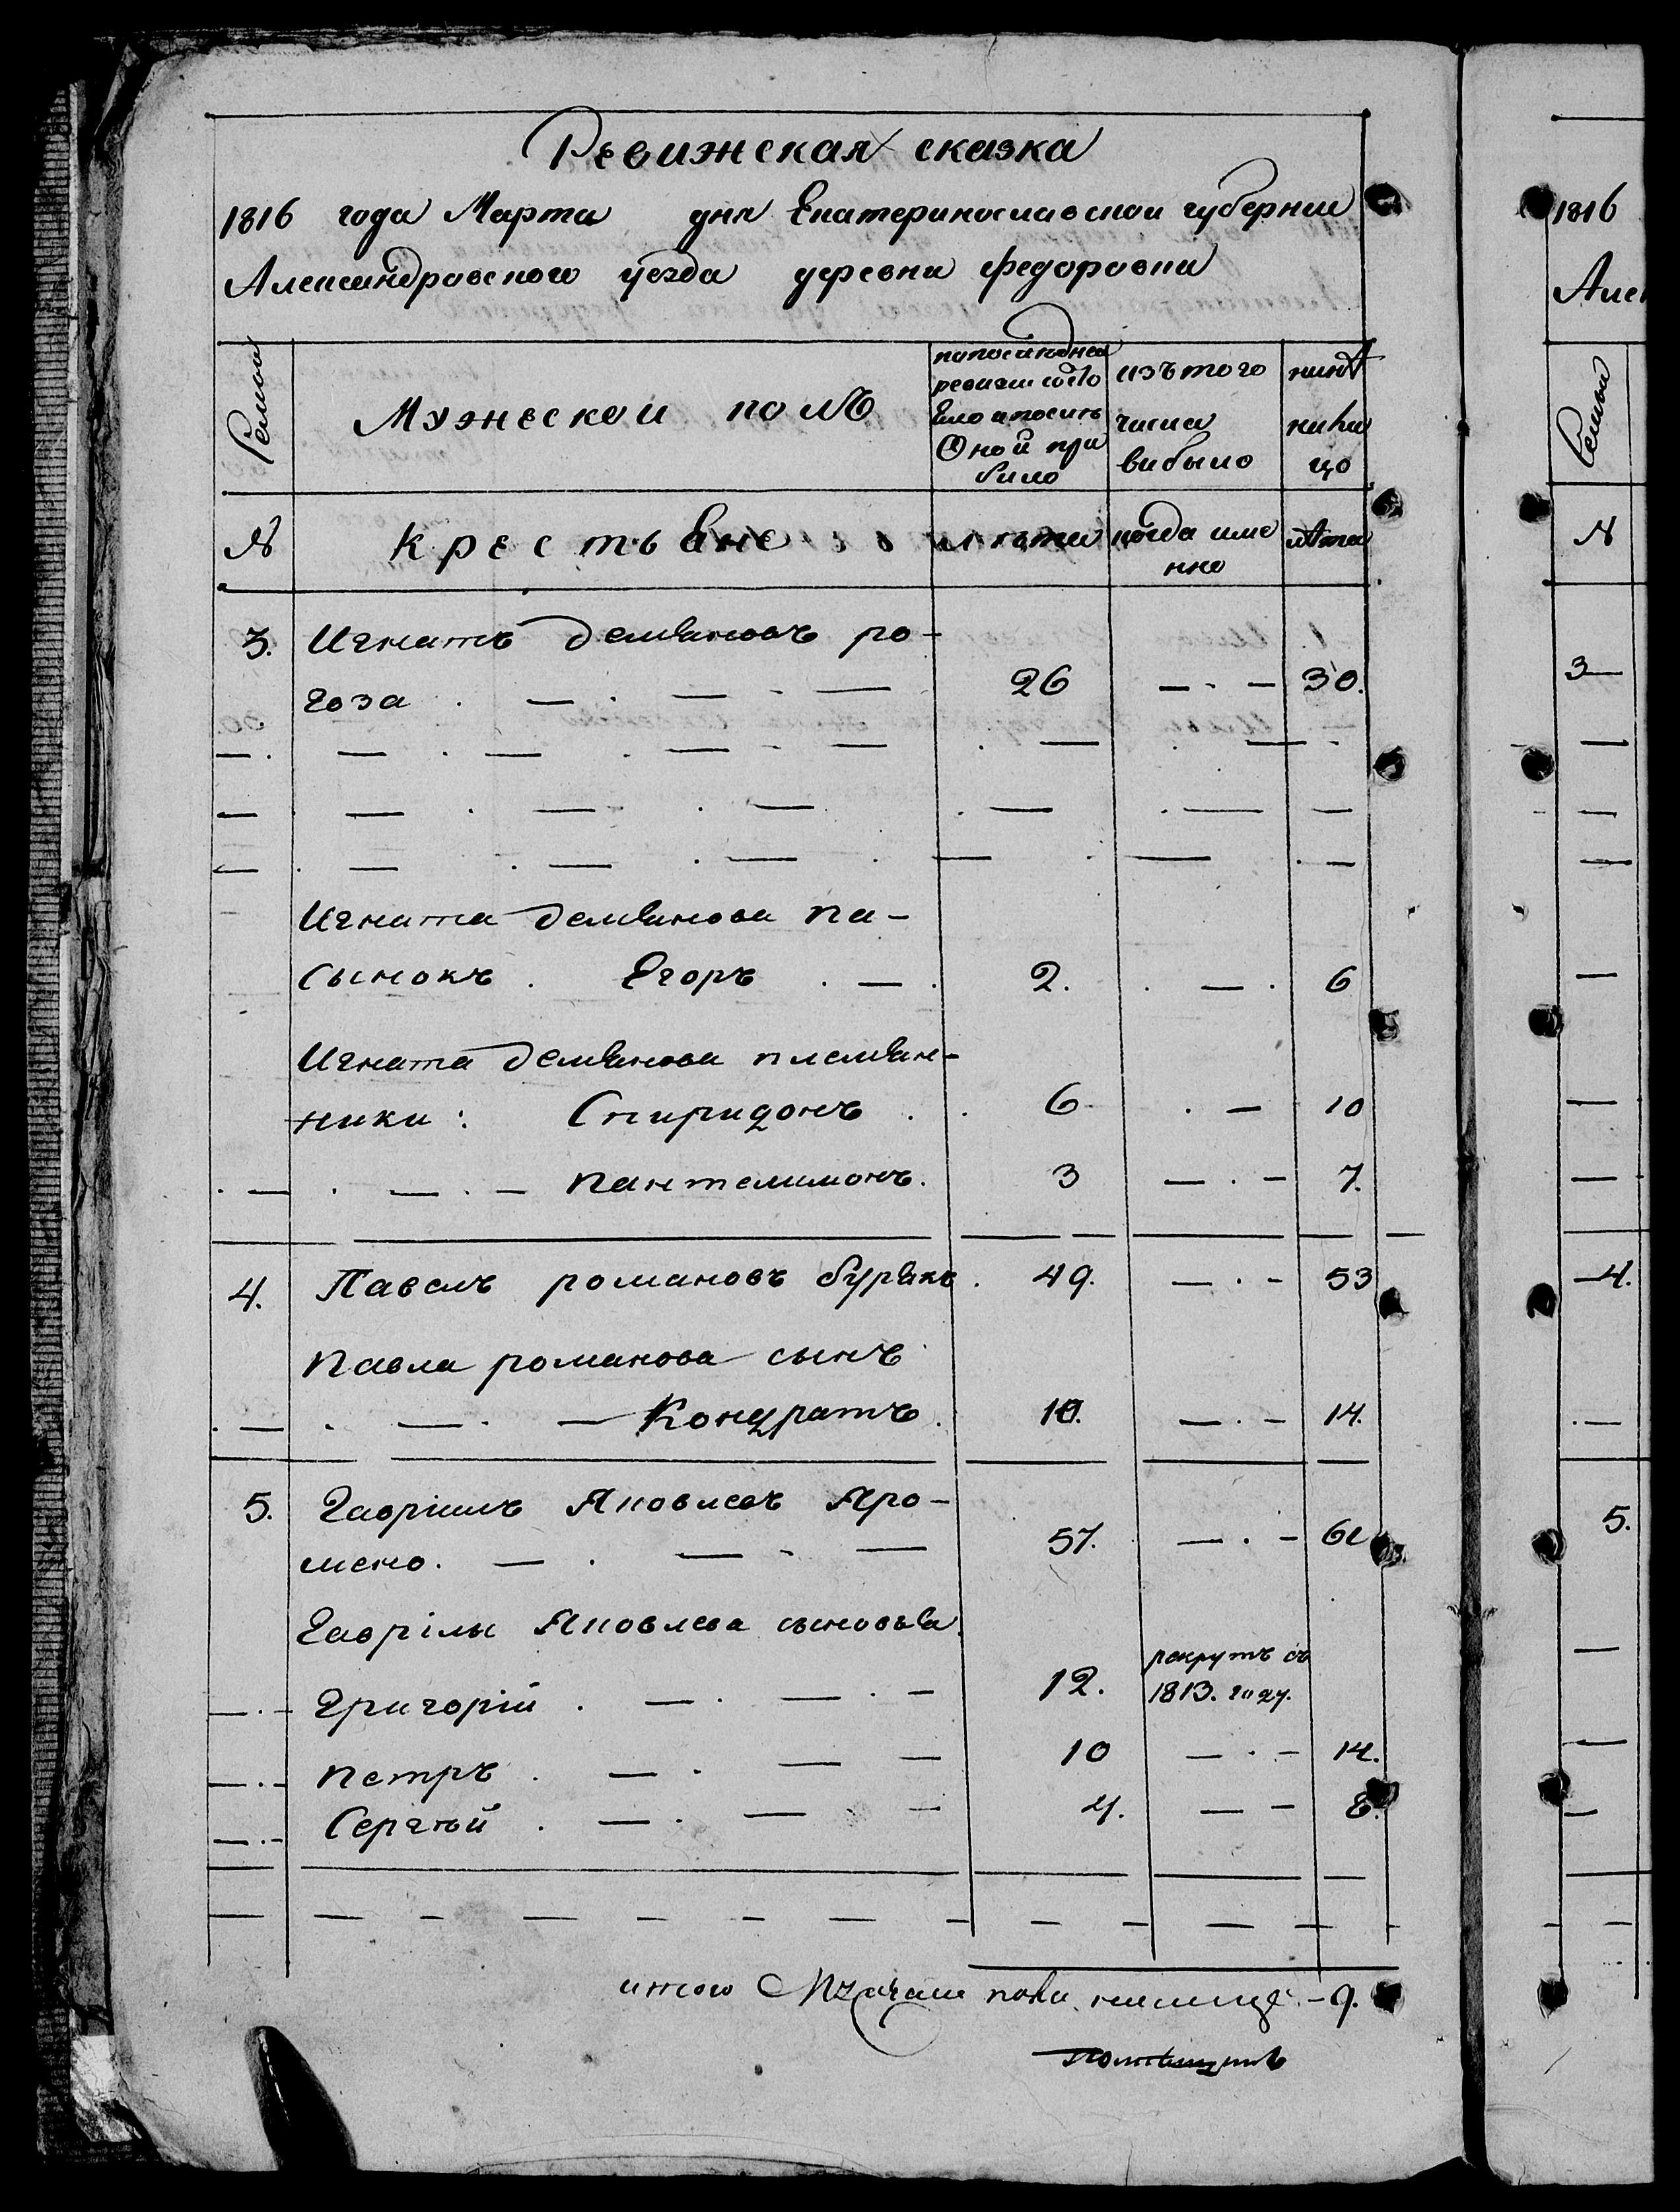 Ревижская сказка
1816 года Марта дня Екатеринославской губернии
Александровского уезда деревни федоровки
Семьи
Мужескои полъ
попоследней ревизии состо Яло ипосле Оной при было
изъ того числа выбыло
ныне налицо
№
крестьяне
лета
когда име нно
лета
3.
Игнатъ демяновъ ро-
26 — · — 30.
гоза
Игната демянова па-
сынокъ . Егоръ . — . 2. . — . 6
Игната демянова племян-
ники : Спиридонъ . 6 . — 10
Пантелимонъ. 3 — . — 7.
4. Павелъ романовъ бурякъ . 49. — . — 53
Павла романова сынъ
Кондратъ . 10. — . — 14.
5. Гавриилъ Яковлевъ Яро-
57. — . —
мено.
Гаврілы Яковлева сыновья
Григорій . 12. рекрутъ съ 1813. году.
Петръ . 10 — . — 14.
Сергѣй . 4. — — 8.
итого налицо - 9.
1816
Алек
Семьи
№
3
4.
5.